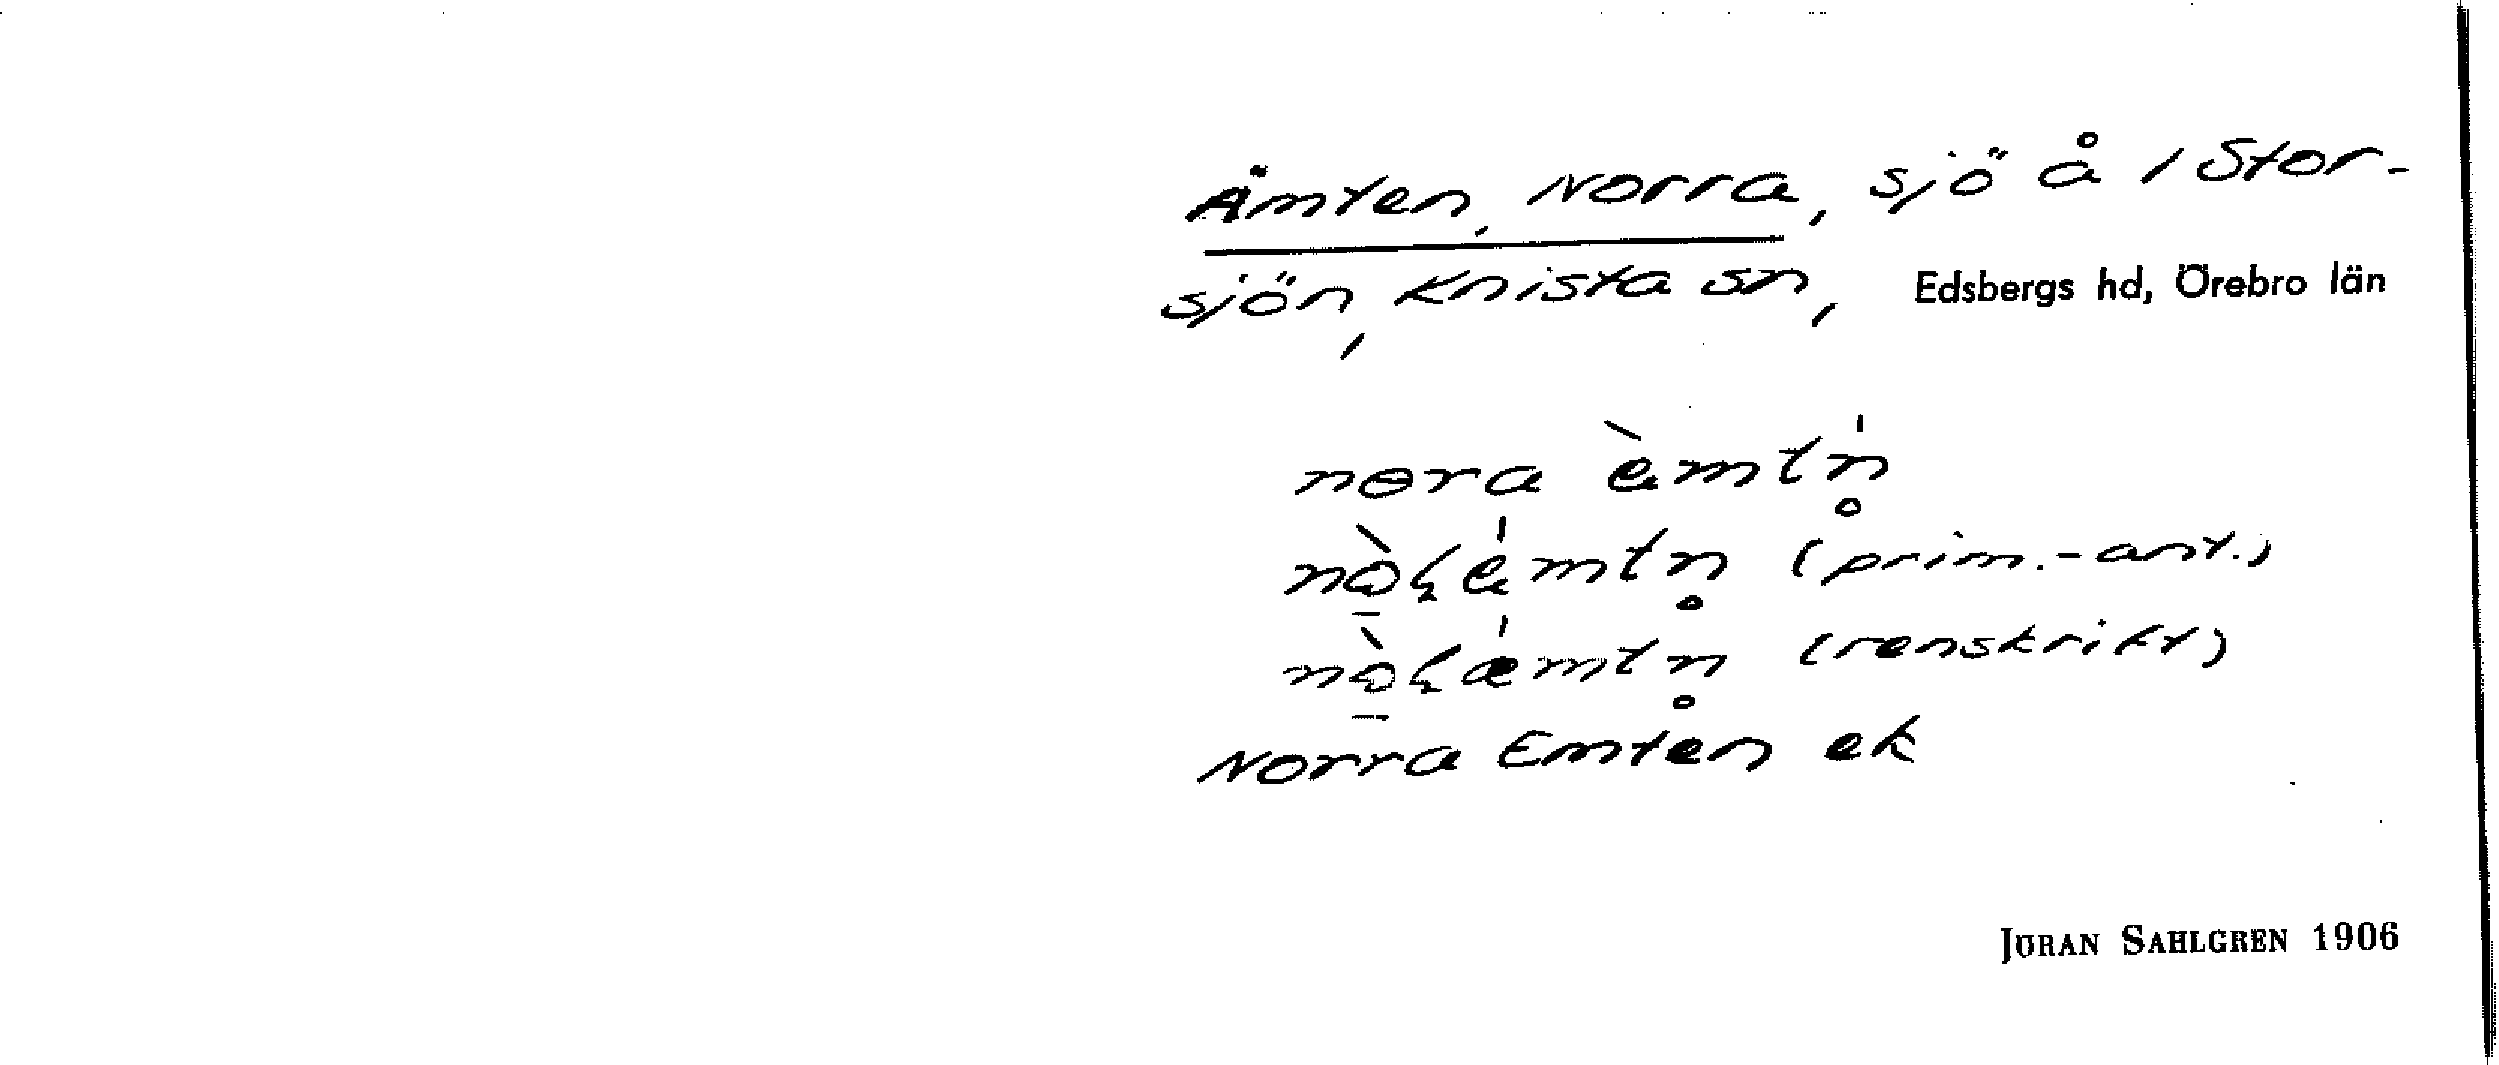 Ämten, Norra, sjö å 1 Stor-
sjön, Knista sn, Edsbergs hd, Örebro län
nɵra èmtń̥
(prim.-ant.)
(renskrikt)
Norra Emten ek
JÖRAN SAHLGREN 1906